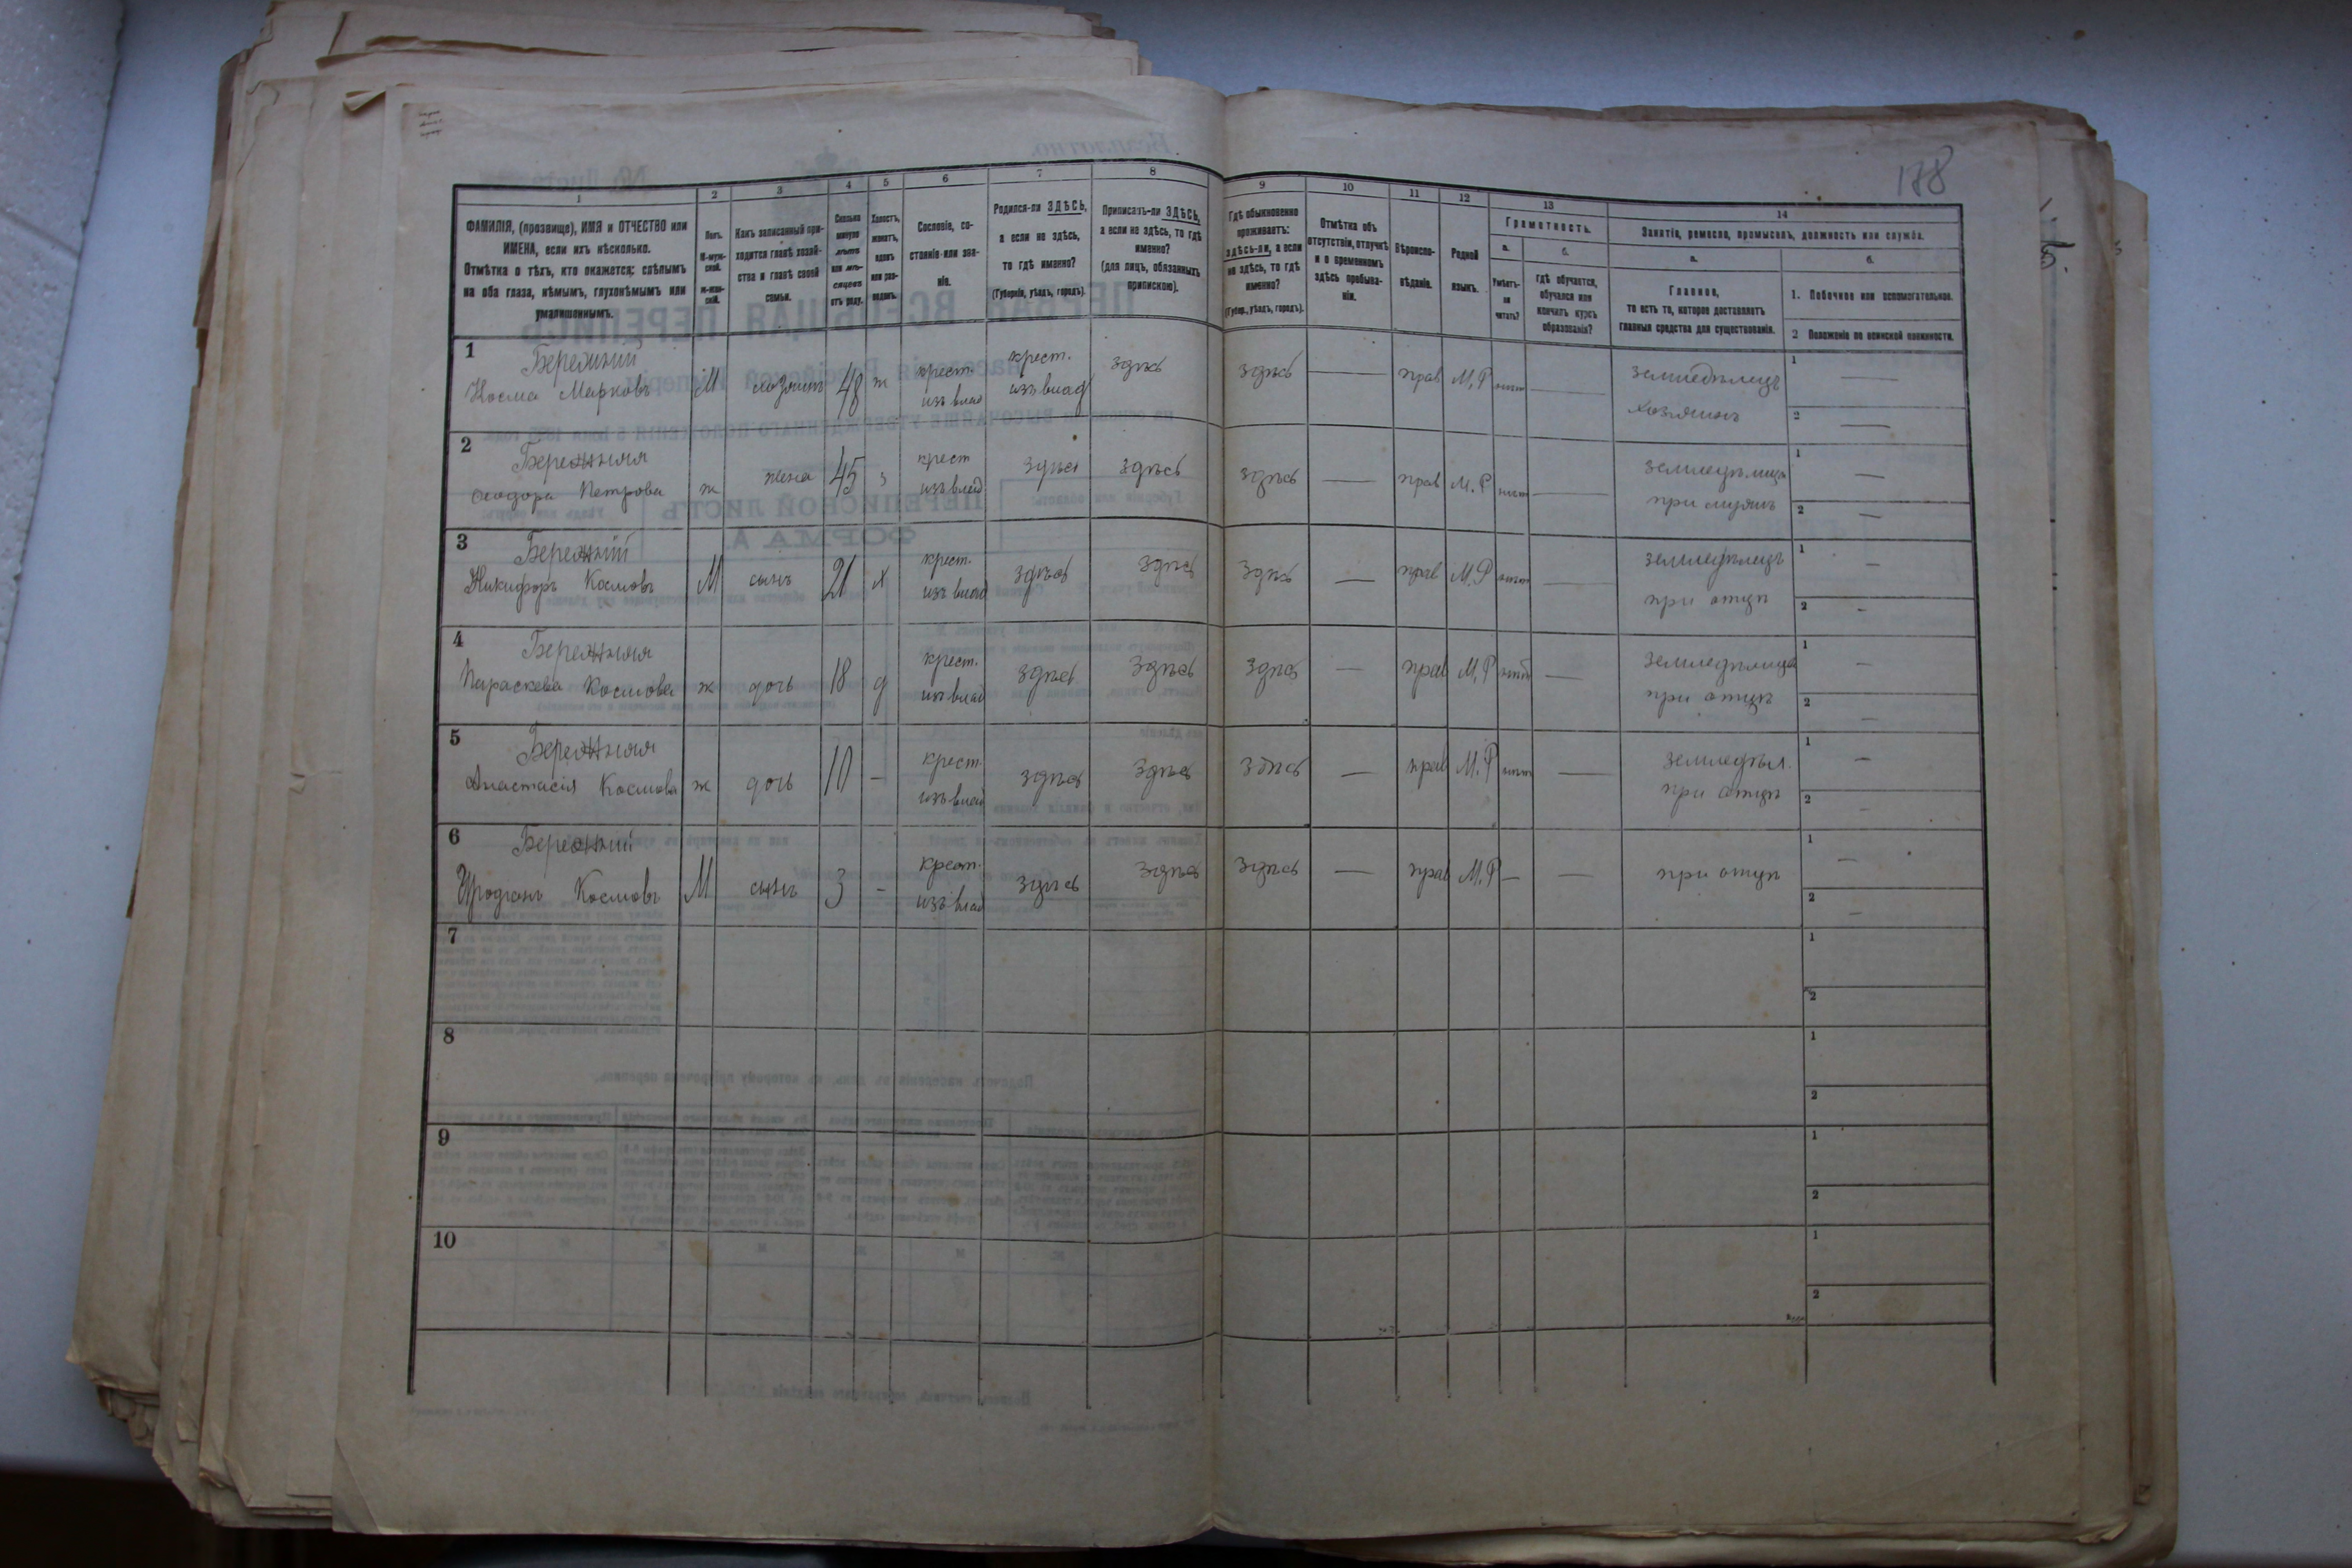 188
1 2 3 4 5 6 7 8 9 10 11 12 13 14
ФАМИЛІЯ, (прозвище), ИМЯ и ОТЧЕСТВО или
ИМЕНА, если ихъ нѣсколько.
Отмѣтка о тѣхъ, кто окажется: слѣпымъ
на оба глаза, нѣмымъ, глухонѣмымъ или
умалишеннымъ.
Полъ.
М-муж-
ской.
Ж-жен-
скій.
Какъ записанный при-
ходится главѣ хозяй-
ства и главѣ своей
семьи.
Сколько
минуло
лѣтъ
или мѣ-
сяцевъ
отъ роду.
Холостъ,
женатъ,
вдовъ
или раз-
веденъ.
Сословіе, со-
стояніе или зва-
ніе.
Родился-ли ЗДѢСЬ,
а если не здѣсь,
то гдѣ именно?
(Губернія, уѣздъ, городъ).
Приписанъ-ли ЗДѢСЬ,
а если не здѣсь, то гдѣ
именно?
(для лицъ, обязанныхъ
припискою).
Гдѣ обыкновенно
проживаетъ:
здѣсь-ли, а если
не здѣсь, то гдѣ
именно?
(Губер., уѣздъ, городъ).
Отмѣтка объ
отсутствіи, отлучкѣ
и о временномъ
здѣсь пребыва-
ніи.
Вѣроиспо-
вѣданіе.
Родной
языкъ.
Грамотность.
а. б.
Умѣетъ-
ли
читать?
гдѣ обучается,
обучался или
кончилъ курсъ
образованія?
Занятіе, ремесло, промыселъ, должность или служба.
а. б.
Главное,
то есть то, которое доставляетъ
главныя средства для существованія.
1. Побочное или вспомогательное.
2 Положеніе по воинской повинности.
1 Бережний крест. 1
Косма Марковъ М хозяинъ 48 ж крест. изъ влад изъ влад здѣсь здѣсь — прав М.Р нѣтъ — земледѣлецъ —
хозяинъ 2 —
2 Бережняя крест 1
Феодора Петрова ж жена 45 з изъ влад здѣсь здѣсь здѣсь — прав М.Р нѣтъ — земледѣлица —
при мужѣ 2 —
3 Бережній крест. 1
Никифоръ Космовъ М сынъ 21 х изъ влад здѣсь здѣсь здѣсь — прав М.Р нѣтъ — земледѣлецъ —
при отцѣ 2 —
4 Бережняя крест. 1
Параскева Космова ж дочь 18 д изъ влад здѣсь здѣсь здѣсь — прав М.Р нѣтъ — земледѣлица —
при отцѣ 2 —
5 Бережняя крест. 1
Анастасія Космова ж дочь 10 – изъ влад здѣсь здѣсь здѣсь — прав М.Р нѣтъ — земледѣл. —
при отцѣ 2 —
6 Бережний крест. 1
Иродіонъ Космовъ М сынъ 3 – изъ влад здѣсь здѣсь здѣсь — прав М.Р — — при отцѣ —
2 —
7 1
2
8 1
2
9 1
2
10 1
2